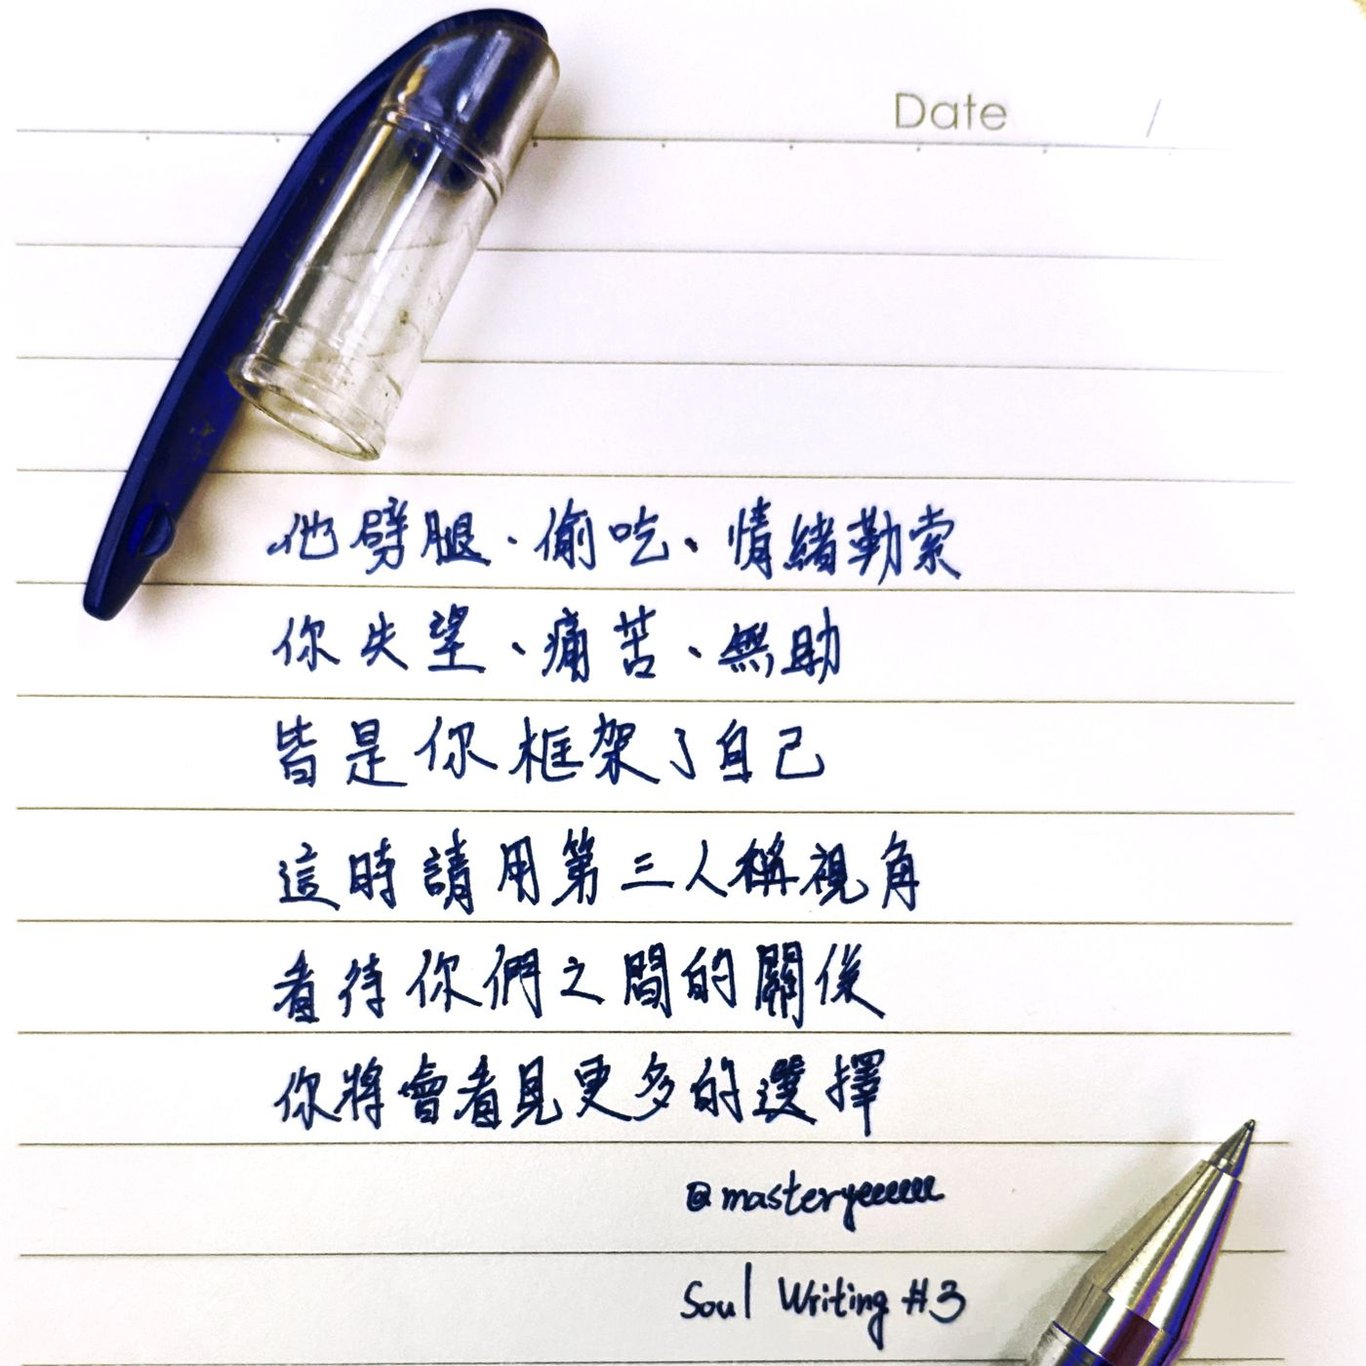 Date /
他劈腿、偷吃、情緒勒索
你失望、痛苦、無助
皆是你框架了自己
這時請用第三人稱視角
看待你們之間的關係
你將會看見更多的選擇
@masteryeeeeeee
Soul Writing #3